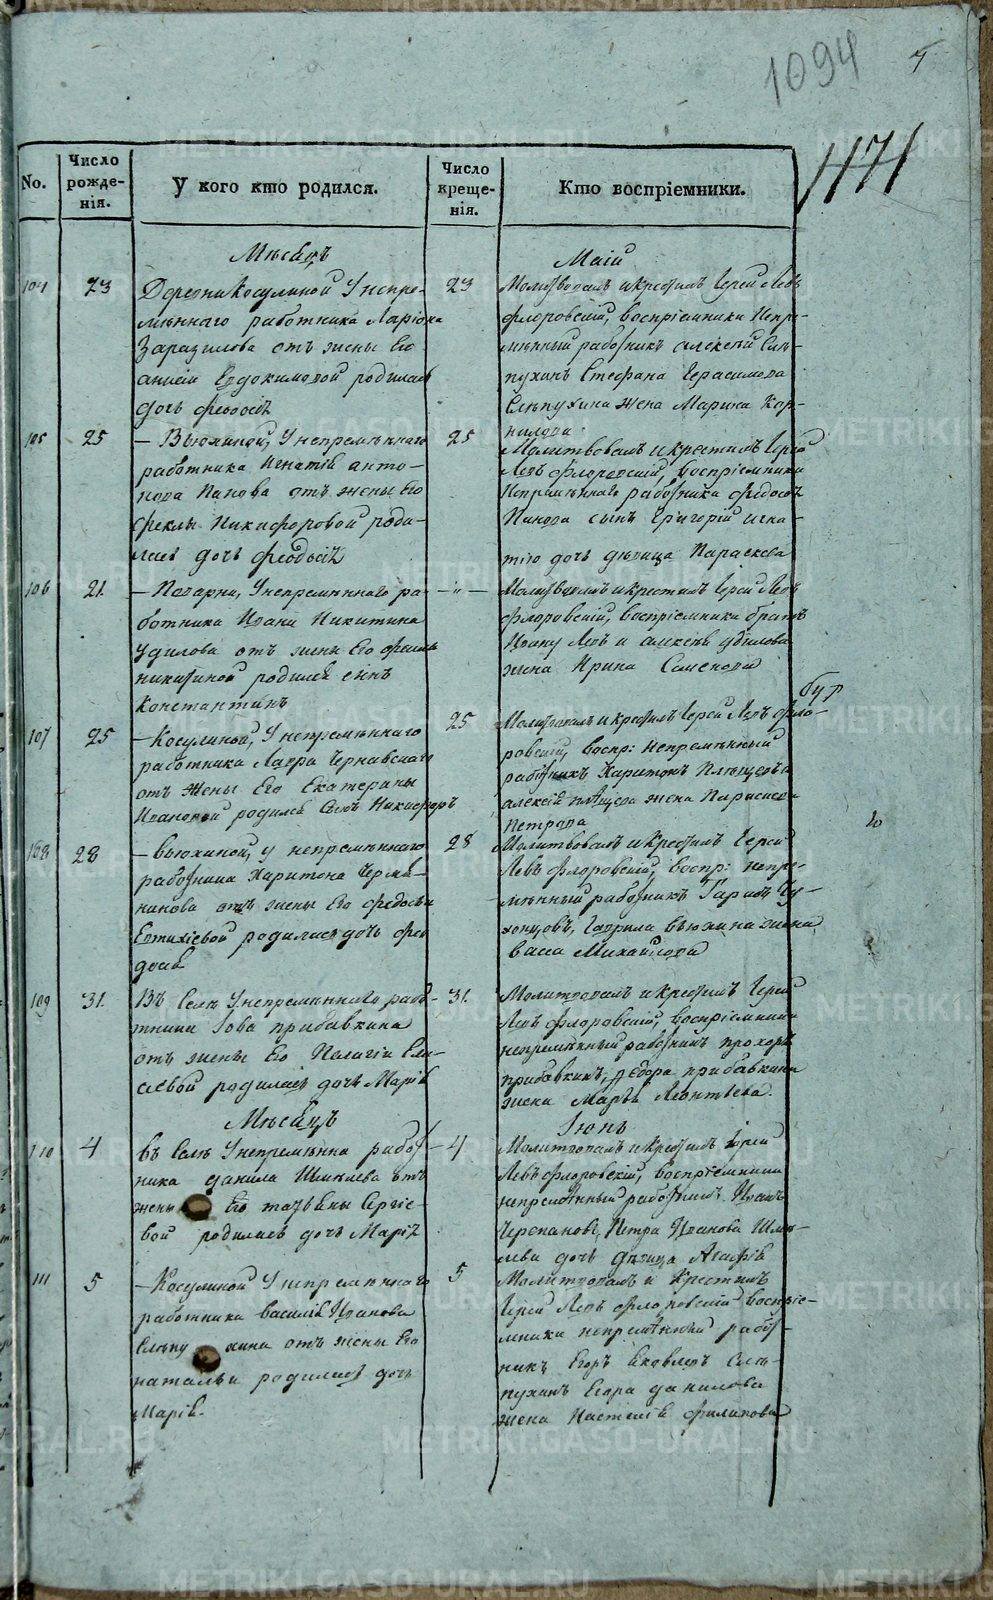 1094
1171
No.
Число рожде-нія.
У кого кто родился.
Число креще-нія.
Кто воспріемники.
Мѣсяцъ
Маій
104
23
Деревни Косулиной У непре-
мѣннаго работника Ларіона
отъ жены Его
Евдокимовой родилась
дочь Феодосія
23
Молитвовалъ и крестилъ Іерей Левъ
Флоровскій, воспріемники Непре-
мѣнный работникъ Алексѣй Слѣ-
пухинъ Стефана Герасимова
Слѣпухина жена Марина Кор-
нилова
105
25
— Вьюхиной, У непремѣннаго
работника Игнатія Анто-
нова Панова отъ жены Его
Феклы Никифоровой роди-
лась дочь Феодосія
25
Молитвовалъ и крестилъ Іерей
Левъ Флоровскій, воспріемники
Непремѣннаго работника Федосѣя
Панова сынъ Григорій Игна-
тію дочь дѣвица Параскева
106
21
У непремѣннаго ра-
ботника Ивана Никитина
Удилова отъ жены Его
Никитиной родился сынъ
Константинъ
— " —
Молитвовалъ и крестилъ Іерей Левъ
Флоровскій, воспріемники братъ
Ивану Левъ и Алексѣя Удилова
жена Ирина Семенова
107
25
— Косулиной, У непремѣннаго
работника Лавра Чернавскаго
отъ жены Его Екатерины
Ивановой родился сынъ Никифоръ
25
Молитвовалъ и крестилъ Іерей Левъ Фло-
ровскій, воспр: Непремѣнный
работникъ Харитонъ Плѣщевъ
Алексія Плѣщева жена
Петрова
108
28
— Вьюхиной, у непремѣннаго
работника Харитона
отъ жены Его Федосьи
Евтихіевой родилась дочь Фео
досія
28
Молитвовалъ и крестилъ Іерей
Левъ Флоровскій, воспр: непре-
мѣнный работникъ
Гаврила Вьюхина жена
Васса Михайлова
109
31.
Въ Селѣ У непремѣннаго рабо-
тника Іова Прибавкина
отъ жены Его Пелагіи Ели-
сѣевой родилась дочь Марія
31.
Молитвовалъ и крестилъ Іерей
Левъ Флоровскій, воспріемники
непремѣнный работникъ Прохоръ
Прибавкинъ, Федора Прибавкина
жена Марья Леонтьева.
Мѣсяцъ
Іюнь
110
4
въ Селѣ У непремѣнна работ-
ника Данила Шмелева отъ
жены Его Сергіе-
вой родилась дочь Марія
4
Молитвовалъ и крестилъ Іерей
Левъ Флоровскій, воспріемники
непремѣнный работникъ Иванъ
Черепановъ, Петра Иванова Шме-
лева дочь дѣвица Агафія
111
5
— Косулиной У непремѣннаго
работника Василія Иванова
Слѣпухина отъ жены Его
Натальи родилась дочь
Марія.
5
Молитвовалъ и крестилъ
Іерей Левъ Флоровскій воспріе-
мники непремѣнный работ-
никъ Егоръ Яковлевъ Слѣ-
пухинъ Егора Данилова
жена Настасія Филипова
METRIKI.GASO-URAL.RU